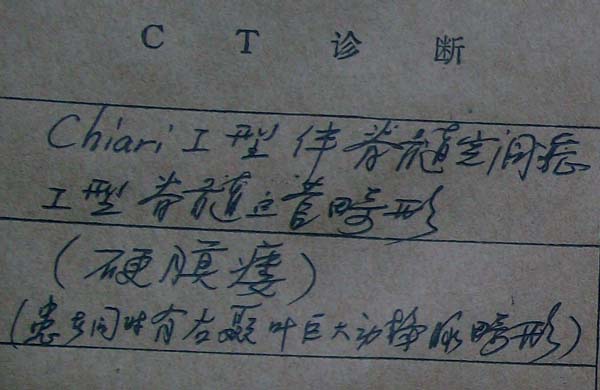 CT诊断
Chiari I型伴脊髓空洞症
I型脊髓血管畸形
(硬膜瘘)
(患者同时有右颞叶巨大动静脉畸形)